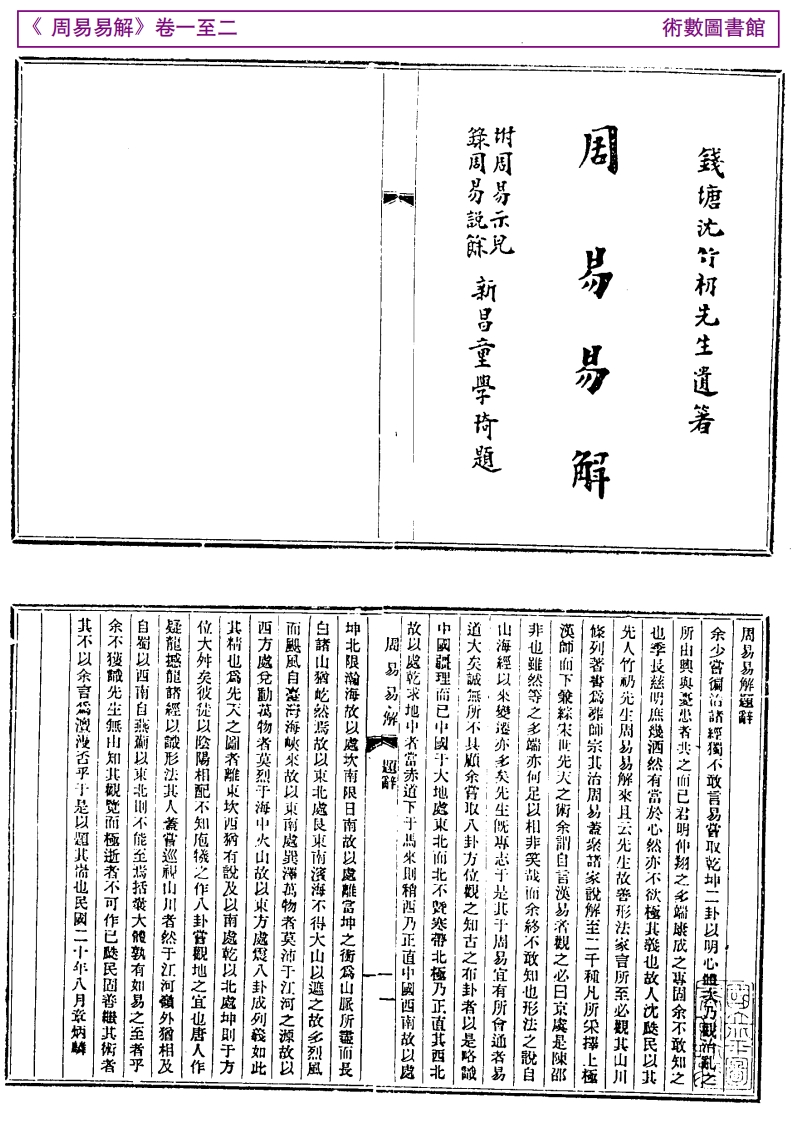 《 周易易解》卷一至二
術數圖書館
錢塘沈竹礽先生遺箸
周易易解
坿周易示兒
錄周易説餘
新昌童學琦題
周易易解題辭
余少嘗徧治諸經獨不敢言易嘗取乾坤二卦以明心體次乃觀治亂之
所由興與憂患者共之而已君明仲翔之多端康成之專固余不敢知之
也季長慈明庶幾洒然有當於心然亦不欲極其義也故人沈瓞民以其
先人竹礽先生周易易解來且云先生故善形法家言所至必觀其山川
條列著書爲葬師宗其治周易蓋衆諸家說解至二千種凡所采擇上極
漢師而下兼綜宋世先天之術余謂自言漢易者觀之必曰京虞是陳邵
非也雖然等之多端亦何足以相非笑哉而余終不敢知也形法之說自
山海經以來變遷亦多矣先生旣專志于是其于周易宜有所會通者易
道大矣誠無所不具顧余嘗取八卦方位觀之知古之布卦者以是略識
中國疆理而已中國于大地處東北而北不暨寒帶北極乃正直其西北
故以處乾求地中者當赤道下于馬來則稍西乃正直中國西南故以處
周易易解
題辭
一
坤北限瀚海故以處坎南限日南故以處離當坤之衝爲山脈所盡而長
白諸山猶屹然焉故以東北處艮東南濱海不得大山以遮之故多烈風
而颶風自臺灣海峽來故以東南處巽澤萬物者莫沛于江河之源故以
西方處兌動萬物者莫烈于海中火山故以東方處震八卦成列義如此
其精也爲先天之圖者離東坎西猶有說及以南處乾以北處坤則于方
位大舛矣彼徒以陰陽相配不知庖犧之作八卦嘗觀地之宜也唐人作
疑龍撼龍諸經以識形法其人蓋嘗巡視山川者然于江河嶺外猶相及
自蜀以西南自燕薊以東北則不能至焉括囊大體孰有如易之至者乎
余不獲識先生無由知其觀覽而極逝者不可作已瓞民固善繼其術者
其不以余言爲瀾漫否乎于是以題其耑也民國二十年八月章炳麟